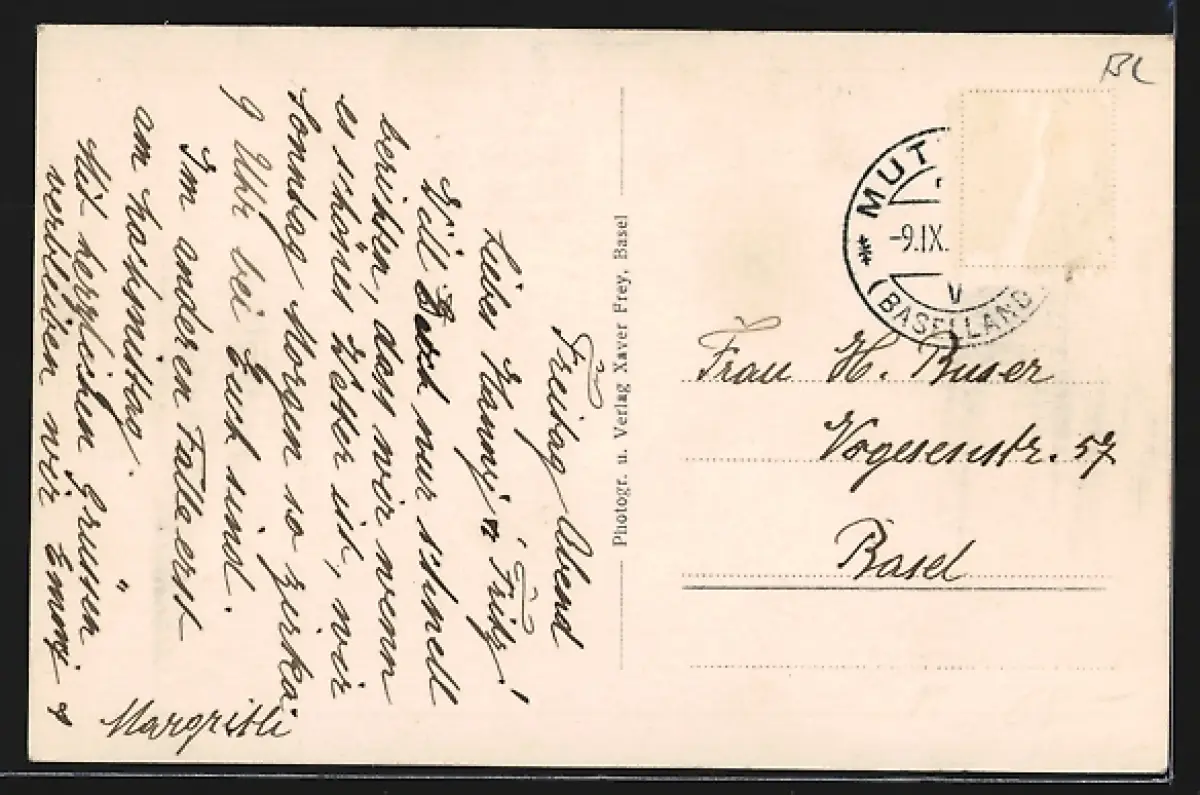 Freitag Abend
Liebes Hanny & Fritz!
Will Euch nur schnell
berichten, dass wir wenn
es schönes Wetter ist, wir
Sonntag Morgen so zirka
9 Uhr bei Euch sind.
Im anderen Falle erst
am Nachmittag.
Mit herzlichen Grüssen
verbleiben wir Emmy &
Margritli
Photogr. u. Verlag Xaver Frey, Basel
BL
MUT
-9.IX.
V
(BASELLAND)
Frau H. Buser
Vogesenstr. 57
Basel